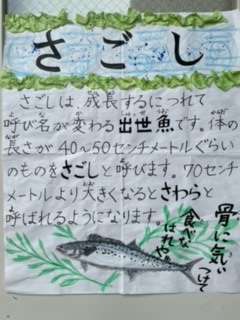 さごし
さごしは、成長するにつれて
呼び名が変わる出世魚です。体の
長さが40〜50センチメートルぐらい
のものをさごしと呼びます。70センチ
メートルより大きくなるとさわらと
呼ばれるようになります。
骨に気ぃつけて
食べなはれや。